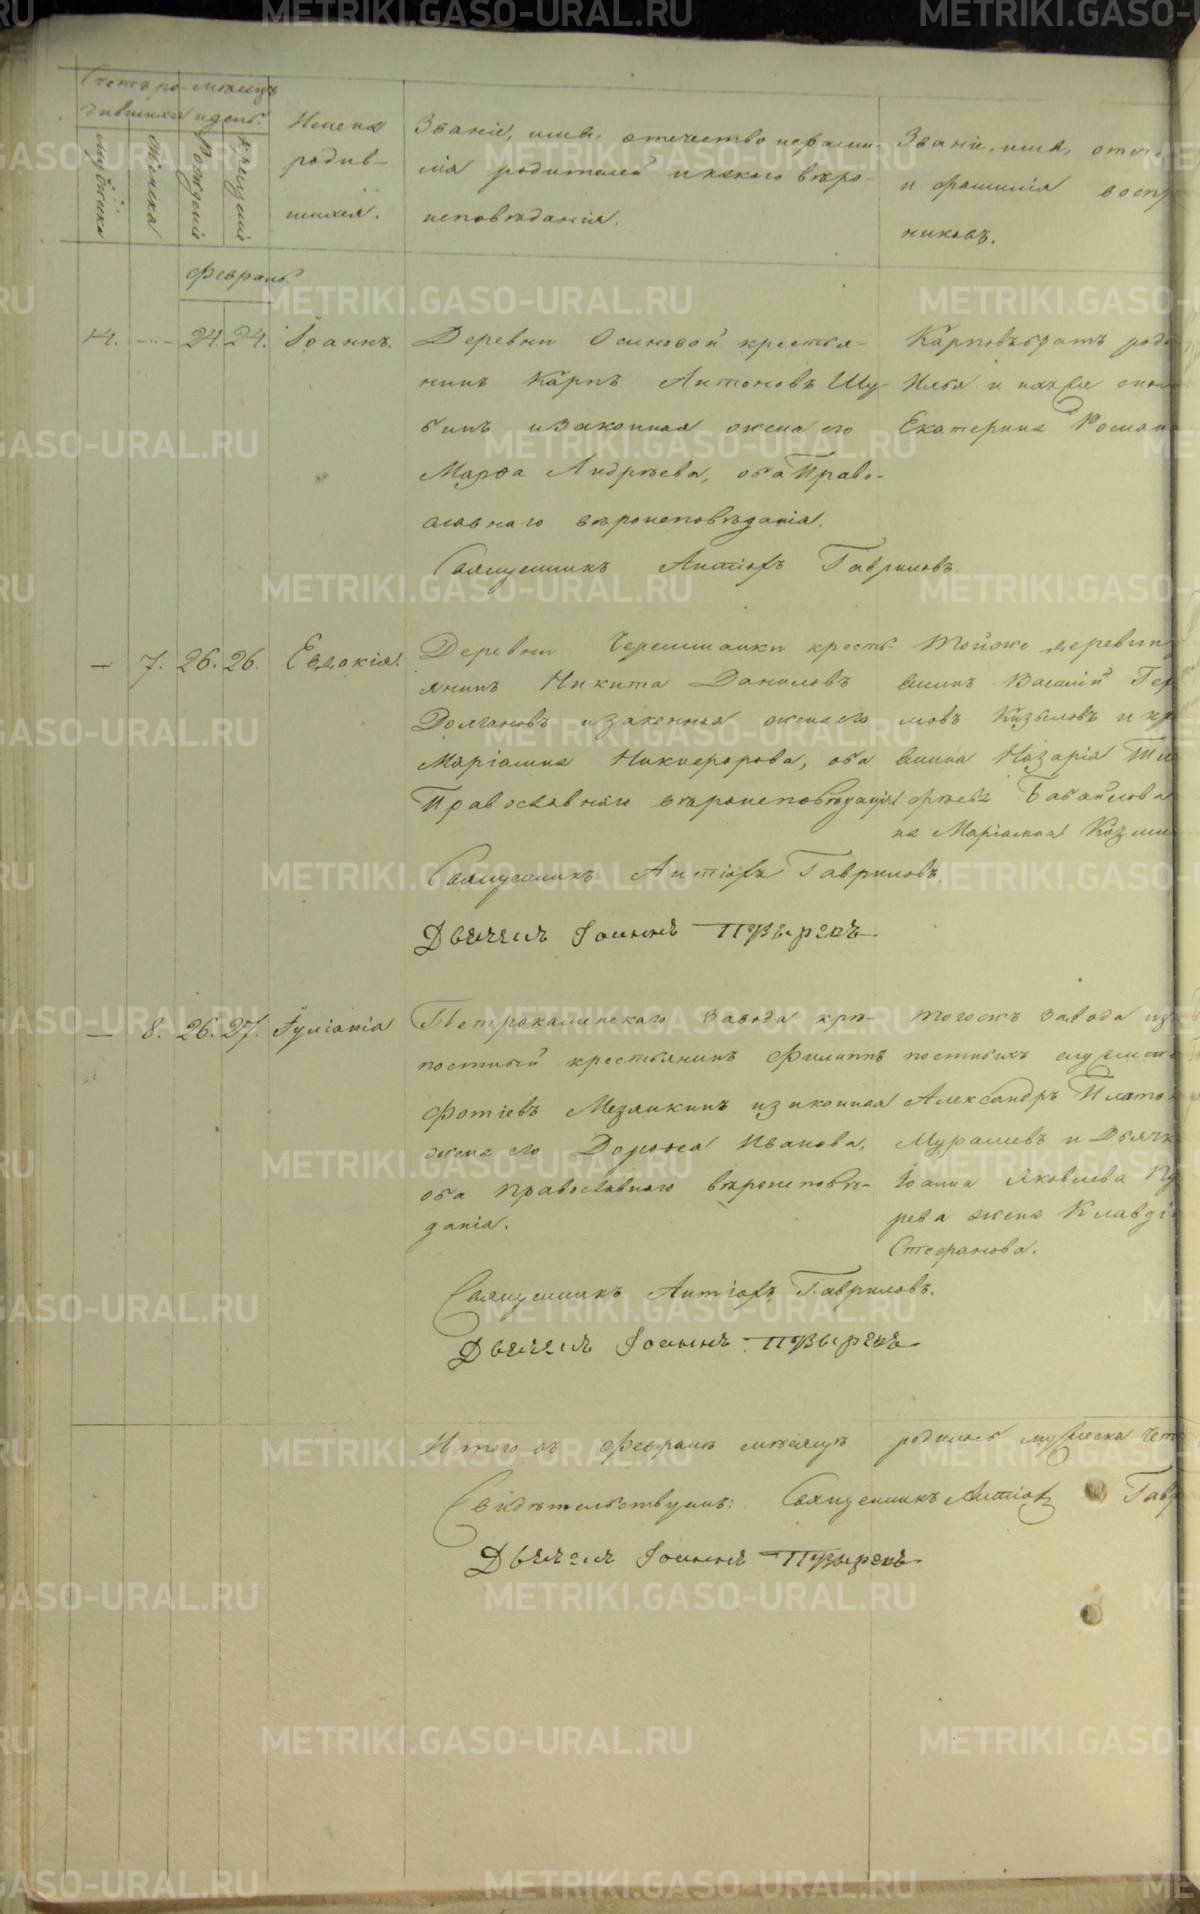 METRIKI.GASO-URAL.RU
Счетъ ро- Мѣсяцъ
дившихся и день.
мужеска
женска
рожденiя
крещенiя
Имена
родив-
шихся.
Званiе, имя, отчество и фами-
лiя родителей и какого вѣро-
исповѣданiя.
Званiе, имя, отче
и фамилiя воспр
никовъ.
Февраль.
14. 24. 24. Iоаннъ.
Деревни Осиновой крестья-
нинъ Карпъ Антоновъ Шу-
бинъ и законная жена его
Марѳа Андрѣева, оба Право-
славнаго вѣроисповѣданiя.
Священникъ Антiохъ Гавриловъ.
Карповъ братъ род
Илья и
Екатерина Роман
— 7. 26. 26. Евдокiя.
Деревни Черемшанки кресть-
янинъ Никита Даниловъ
Долгановъ и законная жена его
Марiамна Никифорова, оба
Православнаго вѣроисповѣданiя
Священникъ Антiохъ Гавриловъ.
Дьячекъ Iоаннъ Пузыревъ
Тойже деревни
Василiй Гер
мовъ и кр
Назарiя Ти
на Марiамна Козми
— 8. 26. 27. Iулiанiя
Петрокаменскаго завода крѣ-
постный крестьянинъ Филиппъ
Фотiевъ Мезянкинъ и законная
жена его Дороѳея Иванова,
оба православнаго вѣроисповѣ-
данiя.
Священникъ Антiохъ Гавриловъ.
Дьячекъ Iоаннъ Пузыревъ
Тогожъ завода изъ
постныхъ служите
Александръ Плато
Мурашевъ и Дьячк
Iоанна Яковлева Пу
рева жена Клавдi
Стефанова.
Итого въ Февралѣ мѣсяцѣ родилось мужеска чет
Свидѣтельствуемъ: Священникъ Антiохъ Гавр
Дьячекъ Iоаннъ Пузыревъ